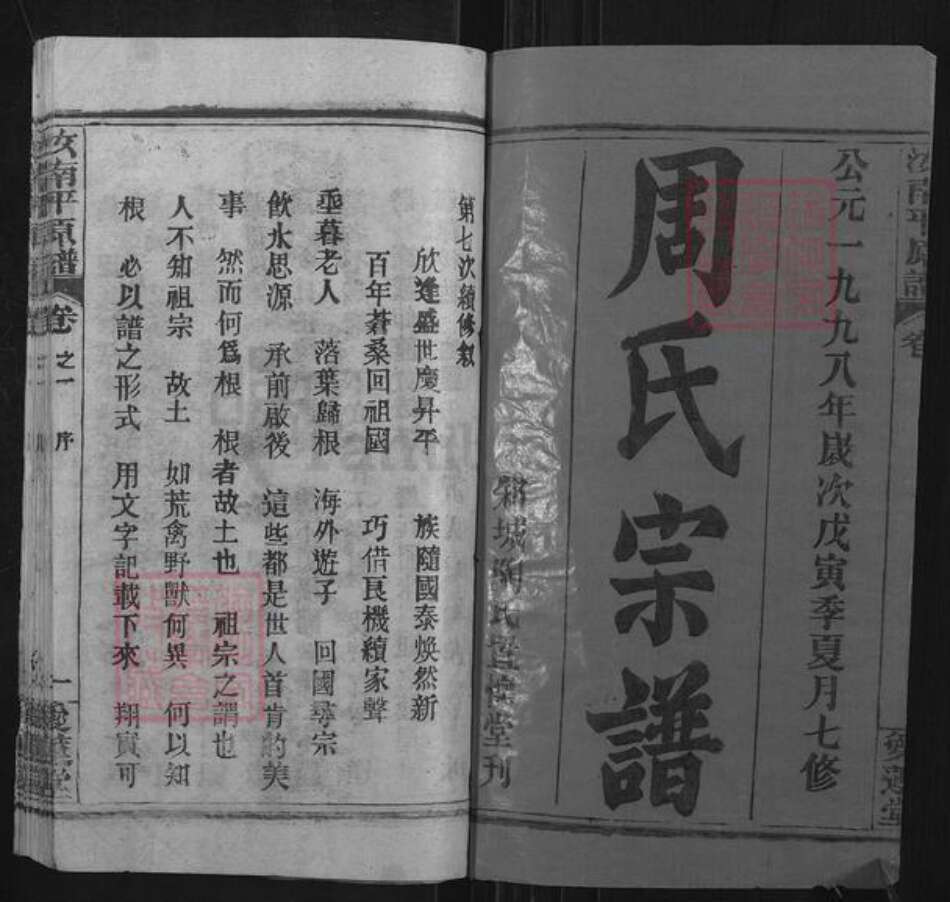 公元一九九八年歲次戊寅季夏月七修
周氏宗譜
城陶氏 堂刊
愛蓮堂
第七次續修敘
欣逢盛世慶昇平 族隨國泰煥然新
百年蒼桑回祖國 巧借良機續家聲
垂暮老人 落葉歸根 海外遊子 回國尋宗
飲水思源 承前啟後 這些都是世人首肯的美
事 然而何為根 根者故土也 祖宗之謂也
人不知祖宗 故土 如荒禽野獸何異 何以知
根 必以譜之形式 用文字記載下來 翔實可
汝南平原譜 卷之一 序 一 愛蓮堂